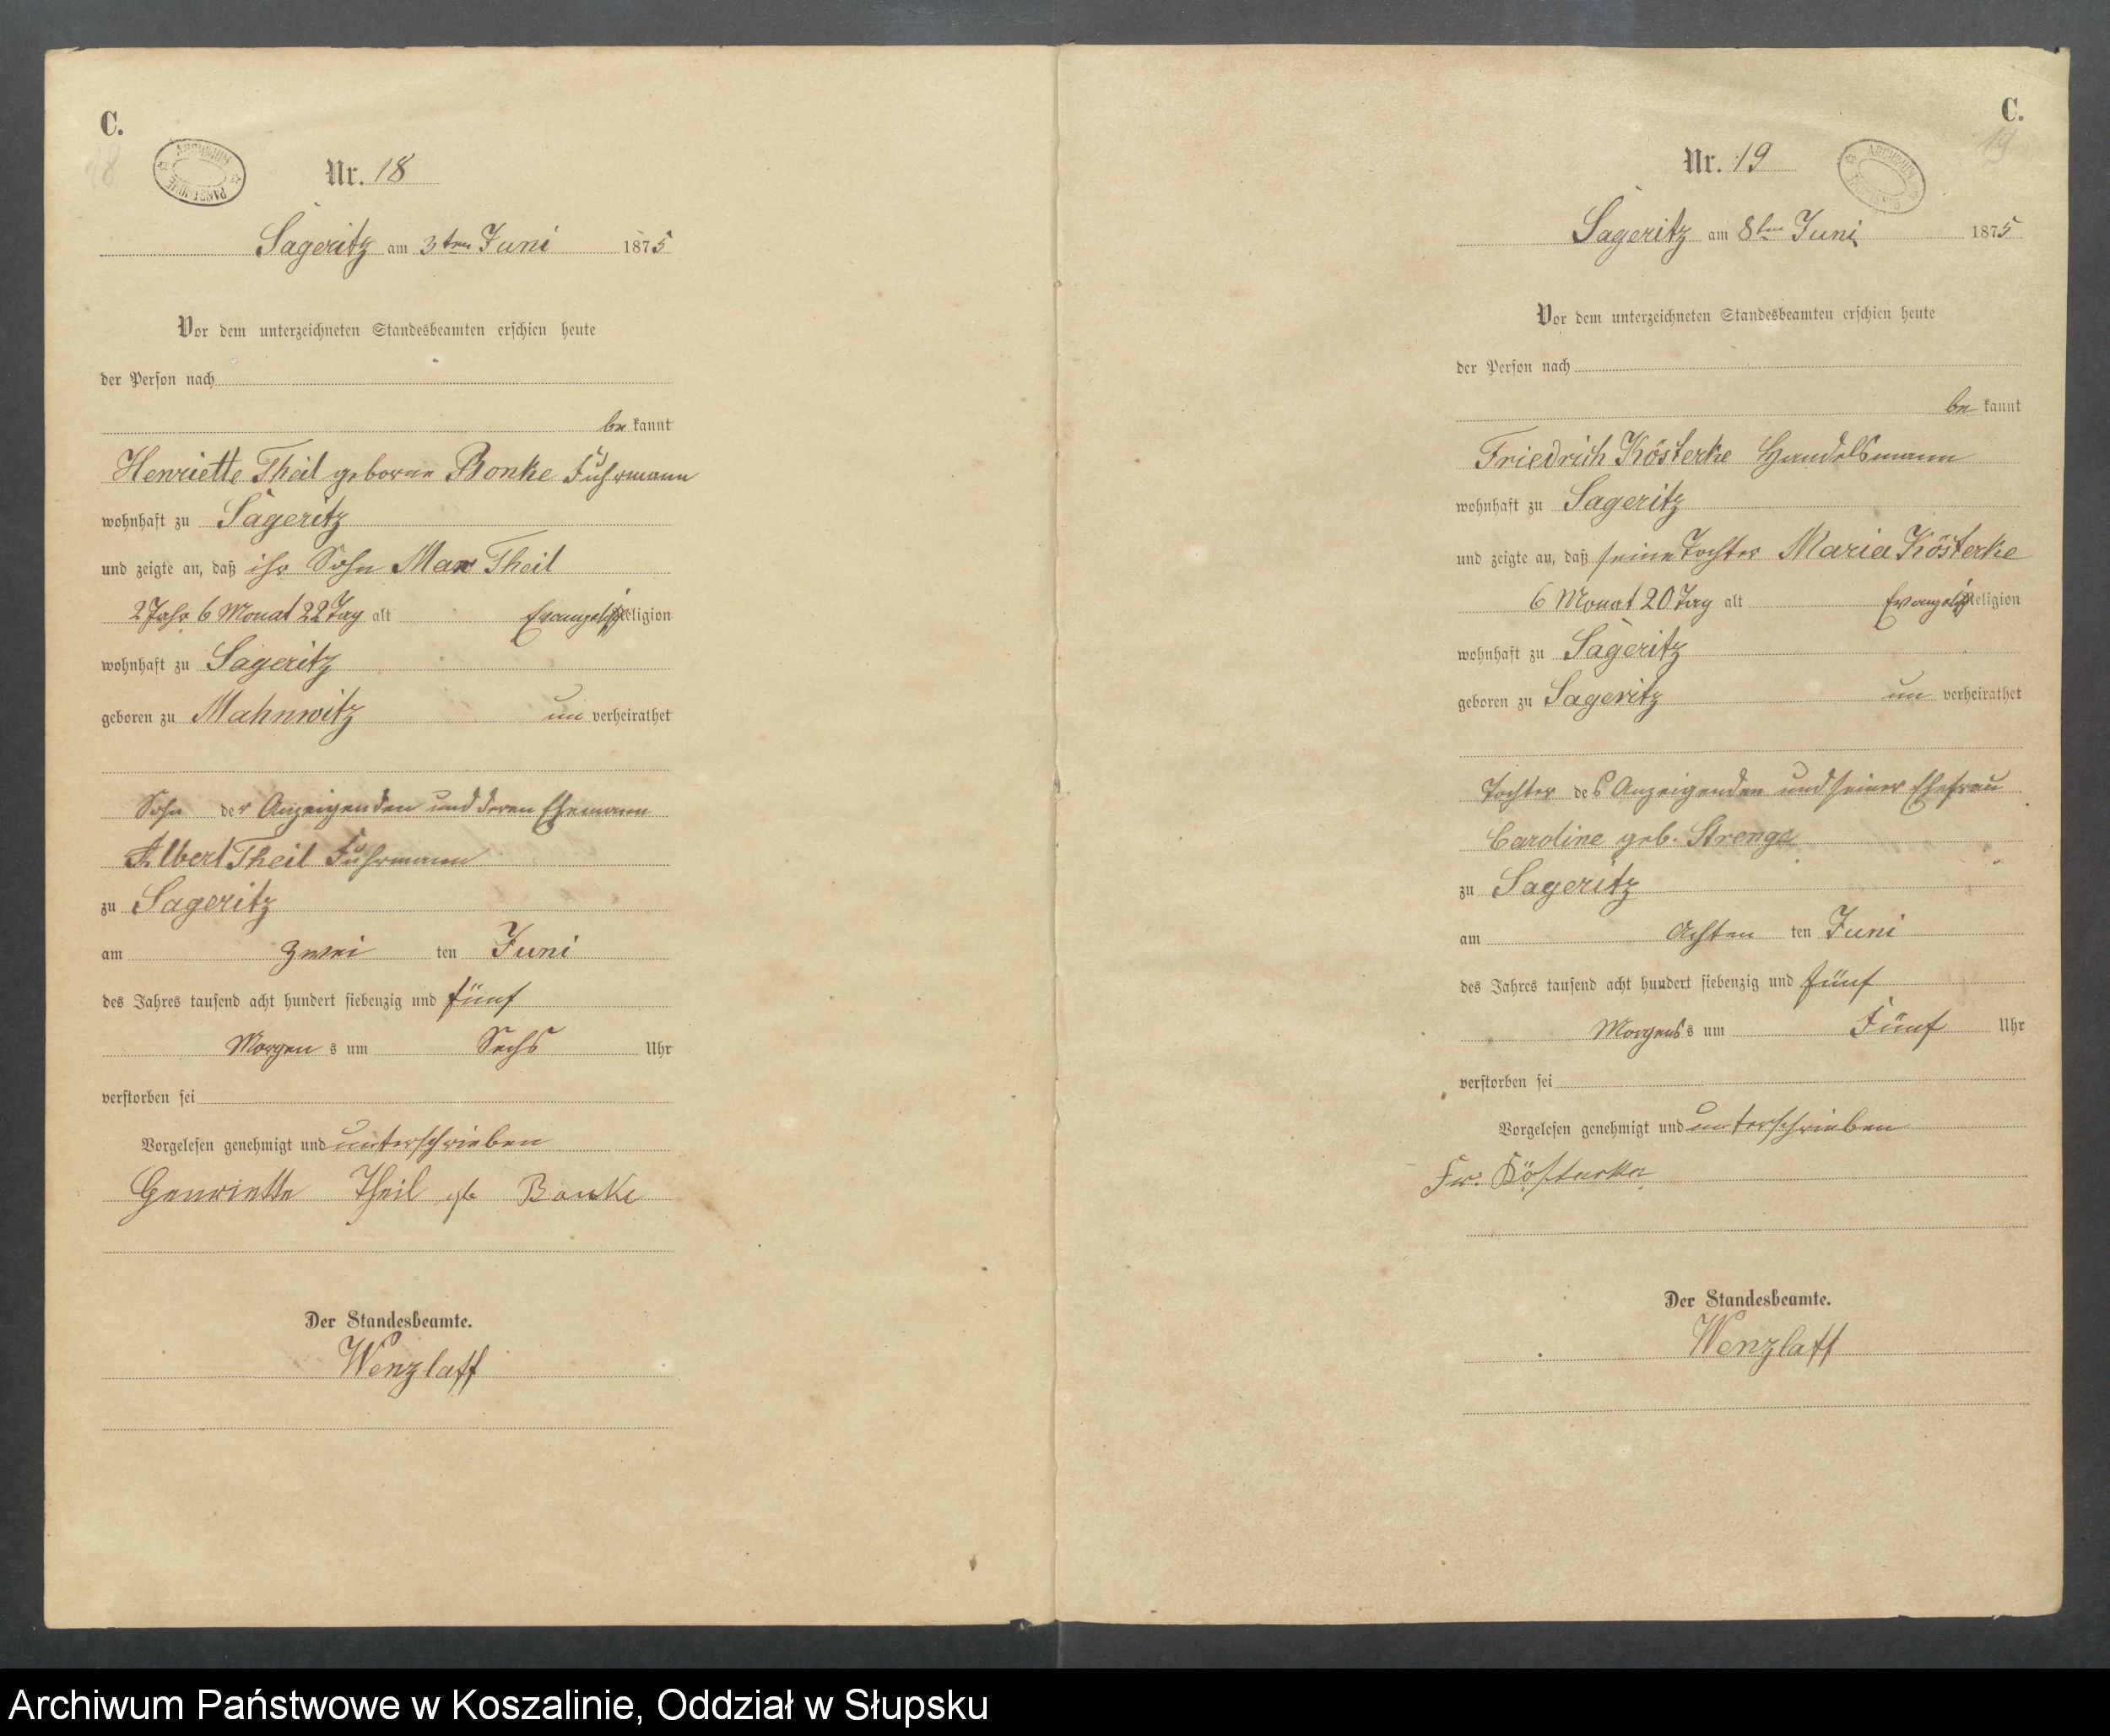 C.
18
ARCHIWUM PAŃSTWOWE
Nr. 18
Sageritz am 3ten Juni 1875
Vor dem unterzeichneten Standesbeamten erschien heute
der Person nach
be kannt
Henriette Theil geborne Bonke Fuhrmann
wohnhaft zu Sageritz
und zeigte an, daß ihr Sohn Max Theil
2 Jahr 6 Monat 22 Tag alt Evangelisch Religion
wohnhaft zu Sageritz
geboren zu Mahnwitz un verheirathet
Sohn der Anzeigenden und deren Ehemann
Albert Theil Fuhrmann
zu Sageritz
am zwei ten Juni
des Jahres tausend acht hundert siebenzig und fünf
Morgen s um Sechs Uhr
verstorben sei
Vorgelesen genehmigt und unterschrieben
Henriette Theil geb Bonke
Der Standesbeamte.
Wenzlaff
C.
19
ARCHIWUM PAŃSTWOWE
Nr. 19
Sageritz am 8ten Juni 1875
Vor dem unterzeichneten Standesbeamten erschien heute
der Person nach
be kannt
Friedrich Kösterke Handelsmann
wohnhaft zu Sageritz
und zeigte an, daß seine Tochter Maria Kösterke
6 Monat 20 Tag alt Evangelisch Religion
wohnhaft zu Sageritz
geboren zu Sageritz un verheirathet
Tochter des Anzeigenden und seiner Ehefrau
Caroline geb. Strenge
zu Sageritz
am Achten ten Juni
des Jahres tausend acht hundert siebenzig und fünf
Morgens s um Fünf Uhr
verstorben sei
Vorgelesen genehmigt und unterschrieben
Fr. Kösterke
Der Standesbeamte.
Wenzlaff
Archiwum Państwowe w Koszalinie, Oddział w Słupsku